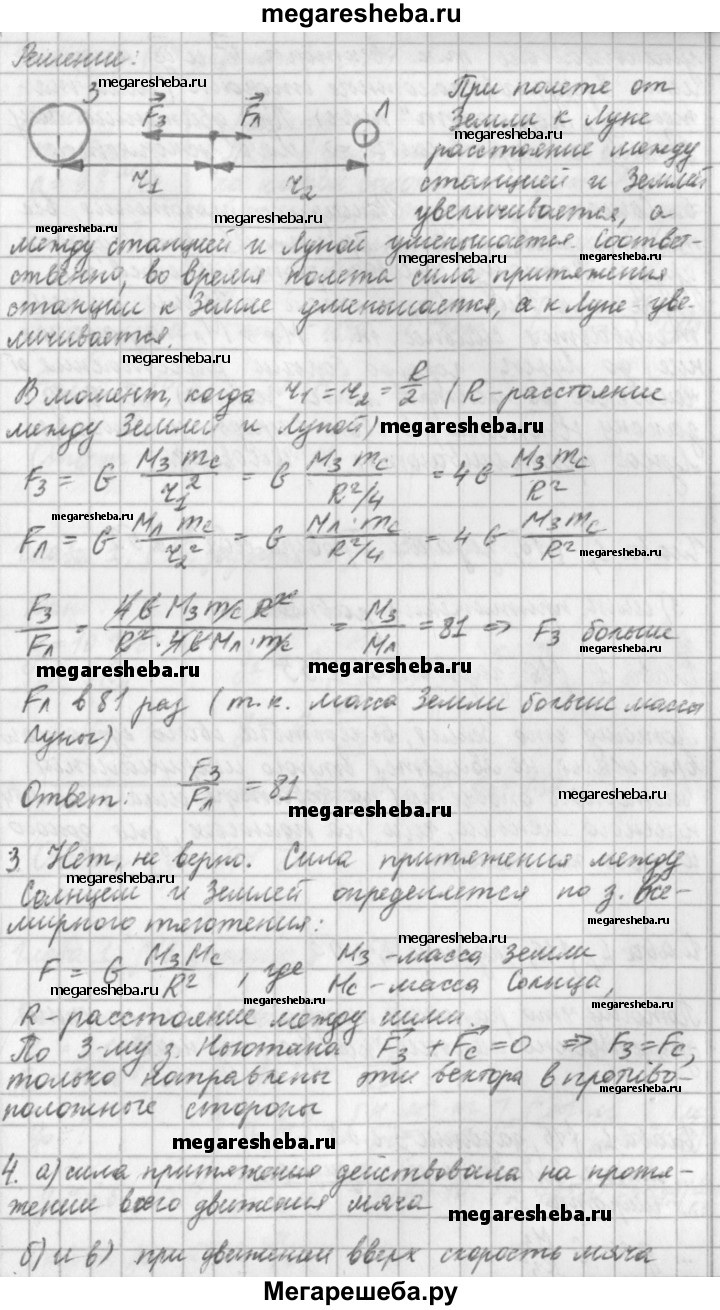 megaresheba.ru
Решение:
З megaresheba.ru F⃗з F⃗л Л
При полете от
Земли к Луне
megaresheba.ru
расстояние между
r₁ r₂ станцией и Землей
megaresheba.ru megaresheba.ru
увеличивается, а
между станцией и Луной уменьшается. Соответ-
megaresheba.ru megaresheba.ru
ственно, во время полета сила притяжения
станции к Земле уменьшается, а к Луне - уве-
megaresheba.ru
личивается.
megaresheba.ru
В момент, когда r₁ = r₂ = R/2 (R - расстояние
между Землей и Луной) megaresheba.ru
Fз = G Mз mс / r₁² = G Mз mс / R²/4 = 4G Mз mс / R²
megaresheba.ru
Fл = G Mл mс / r₂² = G Mл · mс / R²/4 = 4G Mз mс / R²
megaresheba.ru
Fз / Fл = 4G Mз mс R² / R² · 4G Mл · mс = Mз / Mл = 81 ⇒ Fз больше
megaresheba.ru megaresheba.ru
Fл в 81 раз (т.к. масса Земли больше массы
Луны)
Ответ: Fз / Fл = 81
megaresheba.ru megaresheba.ru
3 Нет, не верно. Сила притяжения между
megaresheba.ru
Солнцем и Землей определяется по з. все-
мирного тяготения: megaresheba.ru
megaresheba.ru
F = G Mз Mс / R² , где Mз - масса Земли
Mс - масса Солнца,
megaresheba.ru megaresheba.ru
R - расстояние между ними.
По 3-му з. Ньютона F⃗з + F⃗с = 0 ⇒ Fз = Fс,
только направлены эти вектора в противо-
megaresheba.ru
положные стороны
megaresheba.ru
4. а) сила притяжения действовала на протя-
жении всего движения мяча
megaresheba.ru
б) и в) при движении вверх скорость мяча
Мегарешеба.ру